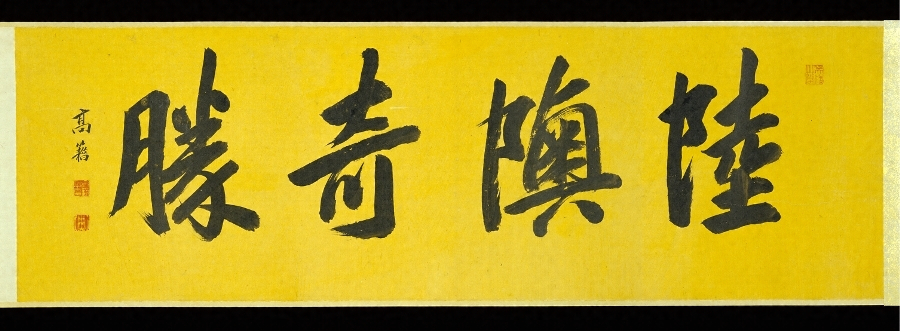 陸隩奇勝
高簪